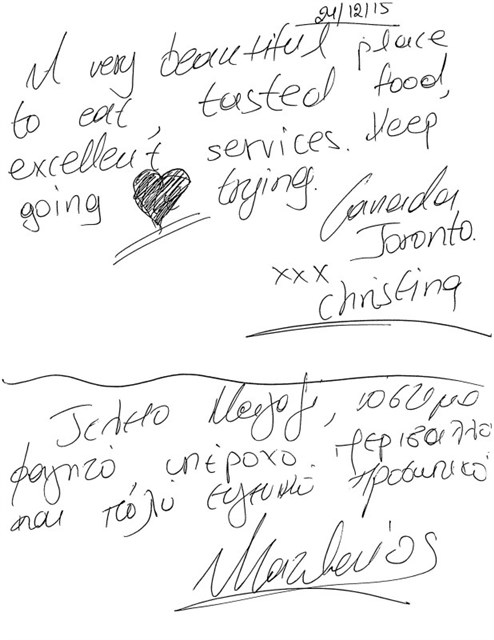 24/12/15
A very beautiful place
to eat, tasted food,
excellent services. Keep
going trying.
Canada,
Toronto.
xxx
Christina
Τελειο Μαγαζι, νοστιμο
φαγητό, υπέροχο περιβαλλο
και πολύ ευγενικό προσωπικό